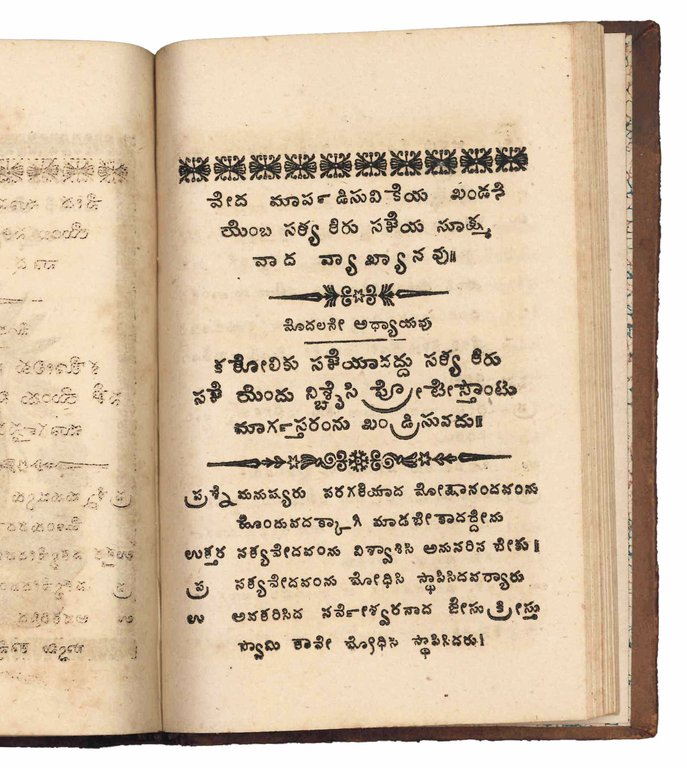 ವೇದ ಮಾರ್ಪಡಿಸುವಿಕೆಯ ಖಂಡನೆ
ಯೆಂಬ ಸತ್ಯ ತಿರು ಸಭೆಯ ಸೂಕ್ಷ್ಮ
ವಾದ ವ್ಯಾಖ್ಯಾನವು॥
ಮೊದಲನೇ ಅಧ್ಯಾಯವು
ಕತೋಲಿಕು ಸಭೆಯಾದದ್ದು ಸತ್ಯ ತಿರು
ಸಭೆ ಯೆಂದು ನಿಶ್ಚೈಸಿ ಪ್ರೋಟೇಸ್ತಾಂಟು
ಮಾರ್ಗಸ್ತರಂನು ಖಂಡ್ರಿಸುವದು॥
ಪ್ರಶ್ನೆ ಮನುಷ್ಯರು ಪರಗತಿಯಾದ ಮೋಕ್ಷಾನಂದವಂನು
ಹೊಂದುವದಕ್ಕಾಗಿ ಮಾಡಬೇಕಾದದ್ದೇನು
ಉತ್ತರ ಸತ್ಯವೇದವಂನು ವಿಶ್ವಾಶಿಸಿ ಅನುಸರಿಸ ಬೇಕು॥
ಪ್ರ ಸತ್ಯವೇದವಂನು ಬೋಧಿಸಿ ಸ್ಥಾಪಿಸಿದವರ್ಯಾರು
ಉ ಅವತರಿಸಿದ ಸರ್ವೇಶ್ವರನಾದ ಜೇಸು ಕ್ರೀಸ್ತು
ಸ್ವಾಮಿ ತಾವೇ ಬೋಧಿಸಿ ಸ್ಥಾಪಿಸಿದರು।